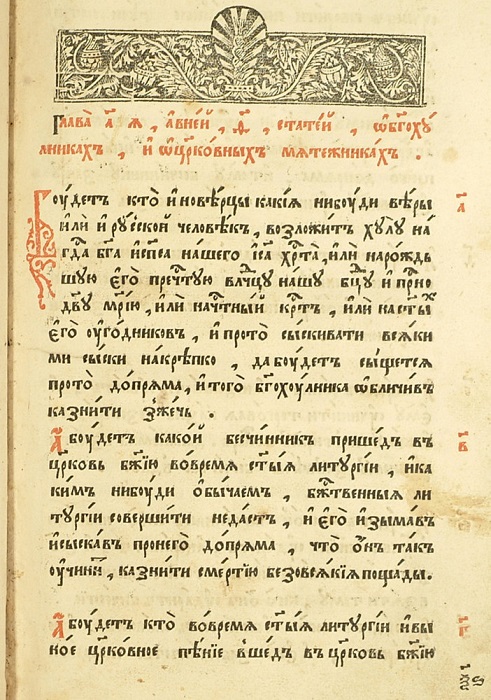 Глава̀ а҃ ꙗ, а҆вне́й, ѳ҃, стате́й, ѡ҆бг҃охꙋ́
лникахъ, и҆ ѡ҆цр҃ко́вныхъ мѧте́жникахъ.
Бꙋ́детъ кто̀ и҆новѣ́рцы какі́ѧ нибꙋди вѣ́ры
и҆лѝ и҆рꙋ́сской человѣ́къ, возложи́тъ хꙋлꙋ̀ на́
гд҇а бг҃а и҆сп҃са нашего і҆с҃а хр҇та̀, и҆лѝ нарождь
шꙋю е҆го̀ преч҇тꙋю влч҇цꙋ нашꙋ бц҃ꙋ и҆ пр҇но
дв҃ꙋ мр҃і́ю, и҆лѝ на ч҇тны́й кр҇тъ, и҆лѝ на ст҃ы́х
е҆го̀ ᲂу҆го́дниковъ, и҆ прото̀ сы́скивати всѧ́ки
ми сы́ски накрѣ́пко, дабꙋ́детъ сы́щетсѧ
прото̀ допрѧ́ма, и҆ того̀ бг҃охꙋ́лника ѡ҆бличи́въ
казни́ти зже́чь.
А҆ бꙋ́детъ како́й безчи́нникъ прише́дъ въ
цр҃ковь бж҃їю во́времѧ ст҃ы́ѧ литꙋргі́и, и҆ка
ки́мъ нибꙋ́ди о҆бы́чаемъ, бж҇твенныѧ ли
тꙋргі́и соверши́ти неда́стъ, и҆ є҆го̀ и҆зыма́въ
и҆сыска́въ пронего̀ допрѧ́ма, что̀ о҆́нъ та́къ
ᲂу҆чини́, казни́ти сме́ртїю безовсѧ́кїѧ поща́ды.
А҆ бꙋ́детъ кто̀ во́времѧ ст҃ы́ѧ литꙋргі́и и҆вы
но́е цр҃ко́вное пѣ́нїе в̾ше́дъ въ цр҃ковь бж҃їю
а҃
в҃
г҃